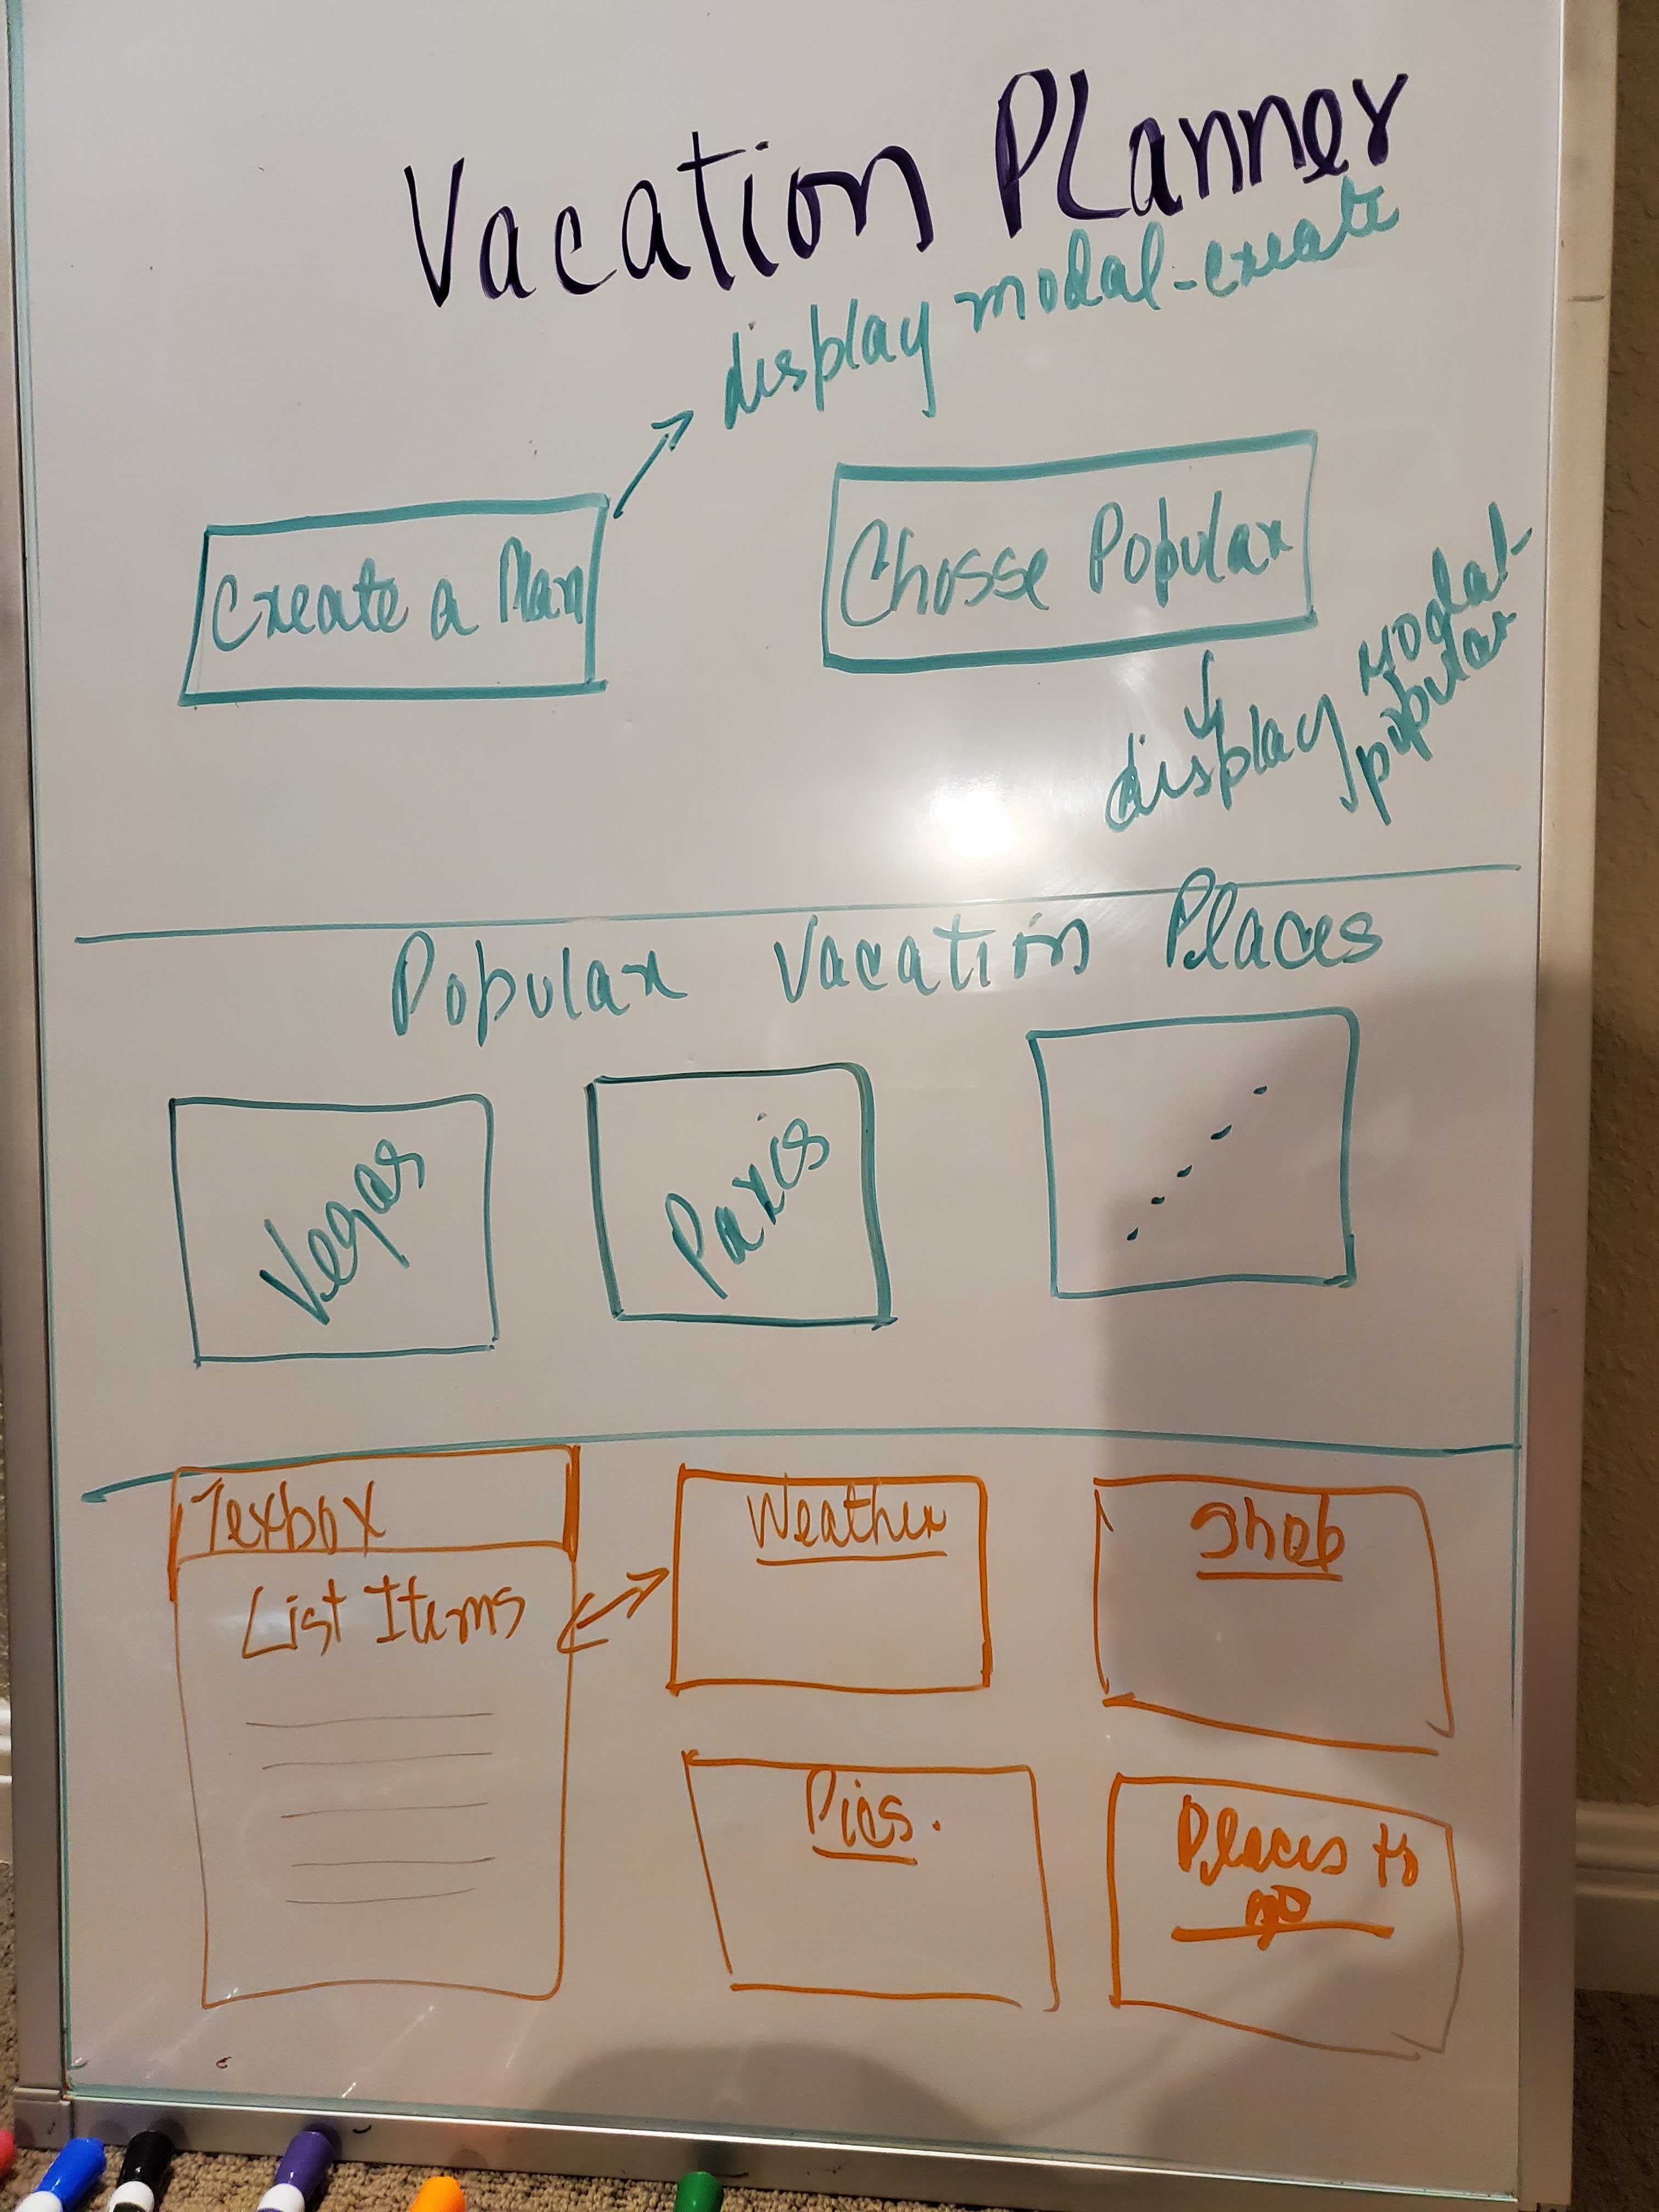 Vacation Planner
display modal-create
Create a Plan
Chosse Popular
display modal-
popular
Popular Vacation Places
Vegas
Paris
Texbox
List Items
Weather
Shop
Pics.
Places to
go